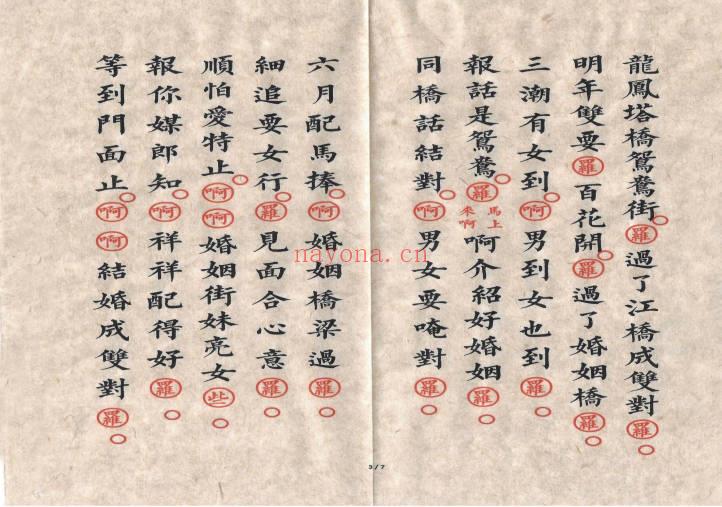 龍鳳塔橋鴛鴦街。羅過了江橋成雙對羅。
明年雙要羅百花開。羅過了婚姻橋羅。
三潮有女到。啊男到女也到羅。
報話是鴛鴦。羅馬上來啊啊介紹好婚姻羅。
同橋話結對。啊男女要唵對羅。
六月配馬捧。啊婚姻橋梁過羅。
細追要女行。羅見面合心意羅。
順怕愛特止。啊啊婚姻街妹亮女些。
報你媒郎知。啊祥祥配得好羅。
等到門面止。啊啊結婚成雙對羅。
nayona.cn
3/7